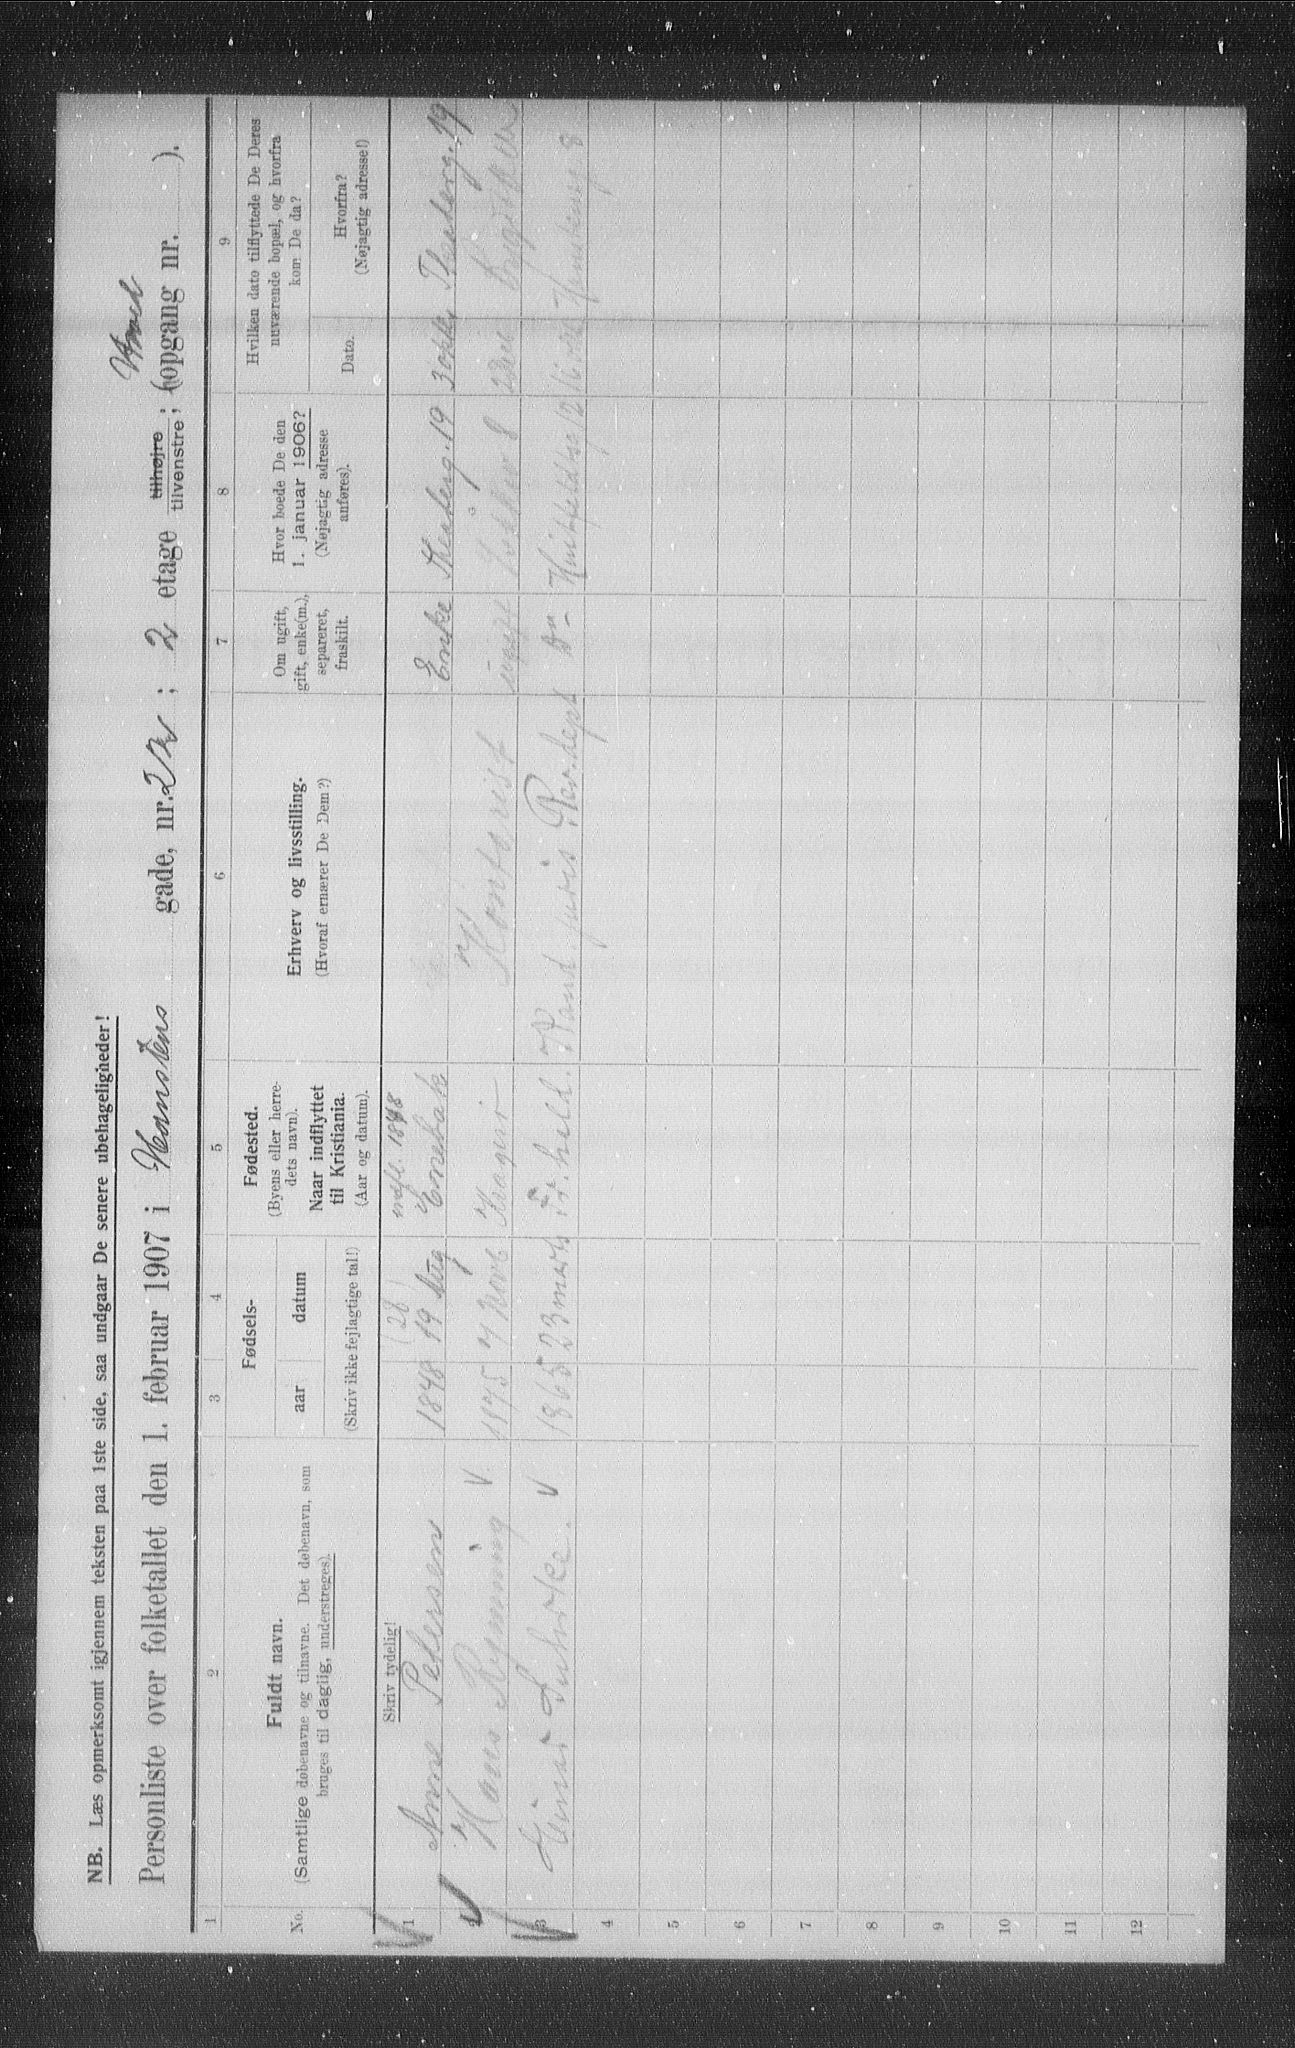 NB. Læs opmerksomt igjennem teksten paa 1ste side, saa undgaar De senere ubehageligheder!
Personliste over folketallet den 1. februar 1907 i Hanstens gade, nr. 2 ; 2 etage tilhøjre tilvenstre ; (opgang nr. ).
1 2 3 4 5 6 7 8 9
No.
Fuldt navn.
(Samtlige døbenavne og tilnavne. Det døbenavn, som
bruges til daglig, understreges).
Fødsels-
aar datum
(Skriv ikke fejlagtige tal!)
Fødested.
(Byens eller herre-
dets navn).
Naar indflyttet
til Kristiania.
(Aar og datum).
Erhverv og livsstilling.
(Hvoraf ernærer De Dem?)
Om ugift,
gift, enke(m.),
separeret,
fraskilt.
Hvor boede De den
1. januar 1906?
(Nøjagtig adresse
anføres).
Hvilken dato tilflyttede De Deres
nuværende bopæl, og hvorfra
kom De da?
Dato.
Hvorfra?
(Nøjagtig adresse!)
Skriv tydelig!
(28) indfl. 1848
1 Anne Petersen 1848 19 Aug Enebak Enke 19 3 okt. 19
Hans Rynning V. 1875 7 Novb Kragerø Kontorist ugift 8
3 Einar V 1865 23 marts Fr.hald. Kand juris Rev. dept Do 12 16 okt 8
4
5
6
7
8
9
10
11
12